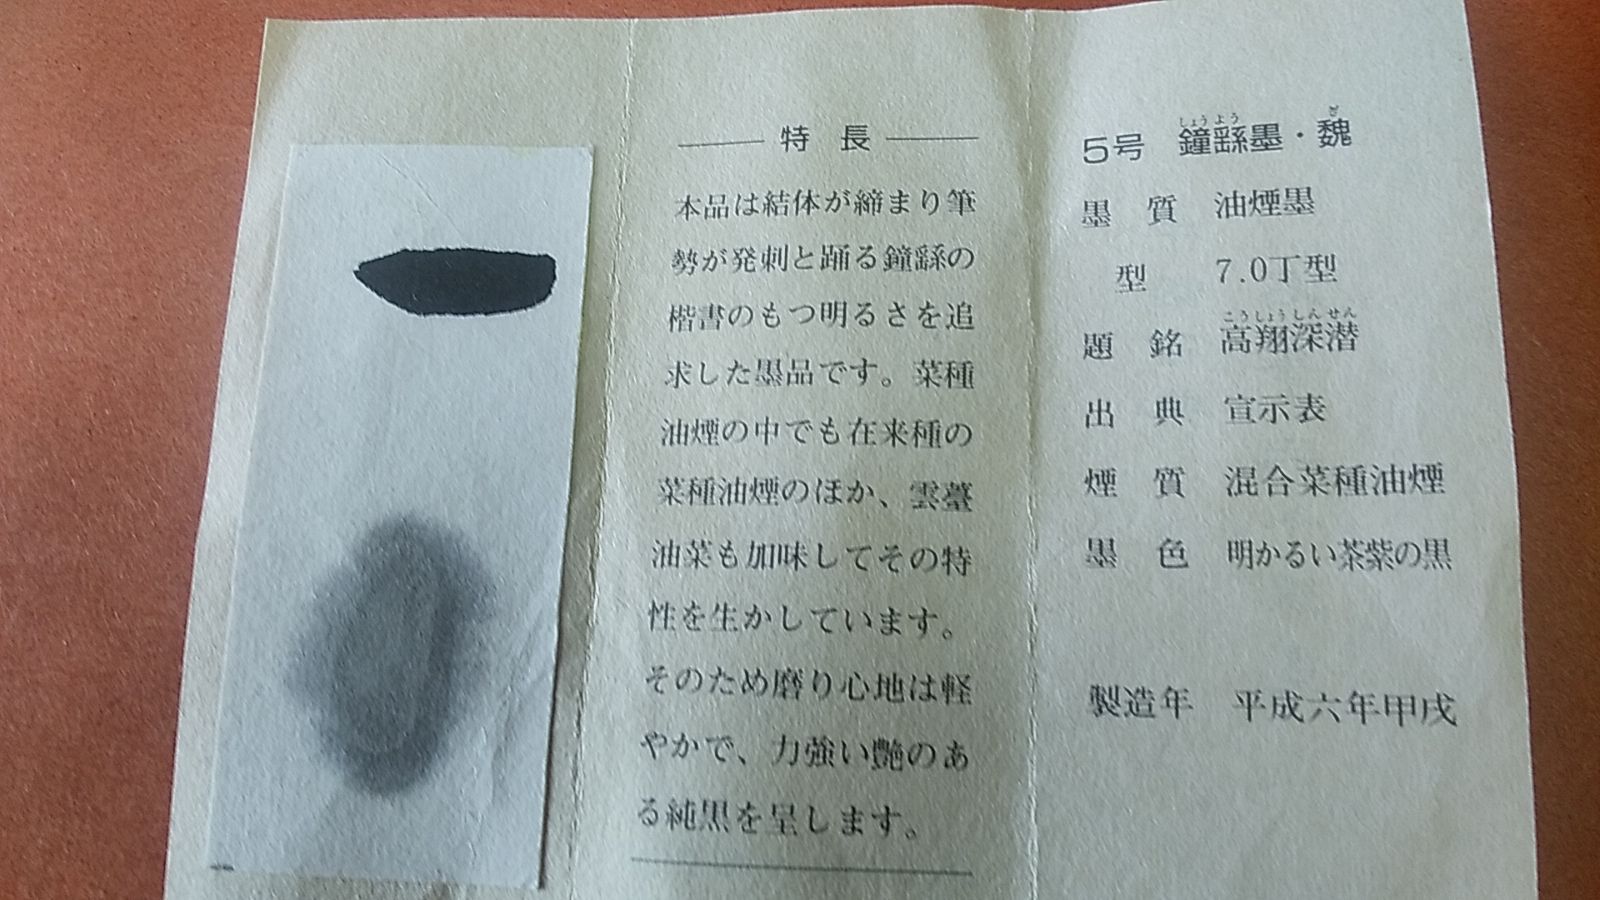 特長
本品は結体が締まり筆
勢が発刺と踊る鐘繇の
楷書のもつ明るさを追
求した墨品です。菜種
油煙の中でも在来種の
菜種油煙のほか、雲薹
油菜も加味してその特
性を生かしています。
そのため磨り心地は軽
やかで、力強い艶のあ
る純黒を呈します。
しょうよう ぎ
5号 鐘繇墨・魏
墨質 油煙墨
型 7.0丁型
こうしょうしんせん
題銘 高翔深潜
出典 宣示表
煙質 混合菜種油煙
墨色 明かるい茶紫の黒
製造年 平成六年甲戌